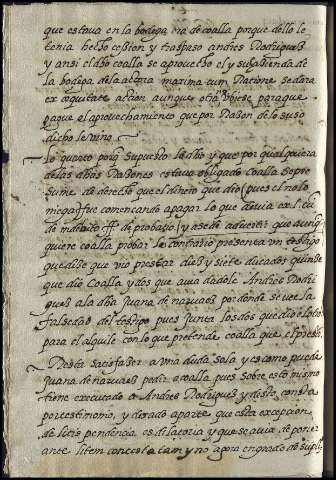 que estava en la bodega no de coalla porque dello le
tenia hecho cession y traspaso andres Rodriguez
y ansi el dho coalla se aprovecho el y su hazienda de
la bodega de la altera maxima cum Racione se dara
ex equitate action aunque otra no vbiese para que
pague el aprovechamiento que por Razon de lo suso
dicho le vino
Lo quarto porq supuesto lo dho y que por qualquiera
de las dhas Razones estava obligado coalla sepre
sume de derecho que el dinero que dio (pues el no lo
niega) fue comencando a pagar lo que devia ex l. cū
de indebito ff de probatio. y a se de advertir que aunq
quiere coalla probar lo contrario presenta vn testigo
que dize que vio prestar diez y siete ducados quinze
que dio Coalla y dos que avia dadole Andres Rodri
guez a la dha Juana de narvaez por donde se vee la
falsedad del testigo pues junta los dos que dio el otro
para el alquile con lo que pretende coalla que el presto
Resta satisfazer a vna duda sola y es como puede
Juana de narvaez pedir a coalla pues sobre esto mismo
tiene executado a Andres Rodriguez y desto consta
por testimonio, y dexado aparte que esta excepcion
de litis pendencia es dilatoria y que se avia de poner
ante litem contestatam y no agora en grado de supli